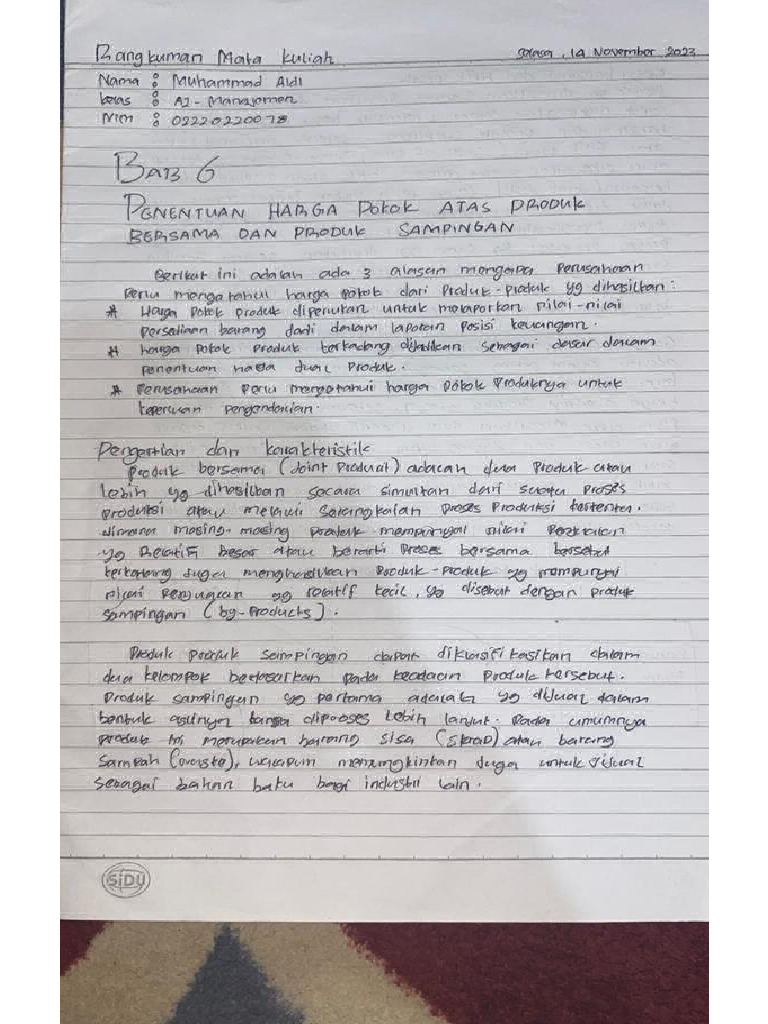 Rangkuman Mata Kuliah
Selasa, 14 November 2023
Nama : Muhammad Aldi
kelas : A2 - Manajemen
Nim : 02220220078
BAB 6
PENENTUAN HARGA POKOK ATAS PRODUK
BERSAMA DAN PRODUK SAMPINGAN
Berikut ini adalah ada 3 alasan mengapa Perusahaan
Perlu mengetahui harga pokok dari Produk-Produk yg dihasilkan :
* Harga Pokok Produk diperlukan untuk melaporkan nilai-nilai
Persediaan barang dadi dalam laporan Posisi keuangan.
* harga Pokok Produk terkadang dijadikan sebagai dasar dalam
penentuan harga jual Produk.
* Perusahaan Perlu mengetahui harga Pokok Produknya untuk
keperluan pengendalian.
Pengertian dan karakteristik
Produk bersama (Joint Product) adalah dua Produk atau
lebih yg dihasilkan secara simultan dari suatu Proses
Produksi atau melalui serangkaian Proses Produksi tertentu.
dimana masing-masing Produk mempunyai nilai
yg Relatif besar atau berarti Proses bersama tersebut
terkadang Juga menghasilkan Produk-Produk yg mempunyai
nilai Penjualan yg relatif kecil, yg disebut dengan produk
sampingan (by-Products).
Produk Produk Sampingan dapat diklasifikasikan dalam
dua kelompok berdasarkan Pada keadaan Produk tersebut.
Produk sampingan yg pertama adalah yg dijual dalam
bentuk aslinya tanpa diproses lebih lanjut. Pada umumnya
Produk ini merupakan barang sisa (skrap) atau barang
Sampah (waste), walaupun memungkinkan Juga untuk dijual
sebagai bahan baku bagi industri lain.
SiDU